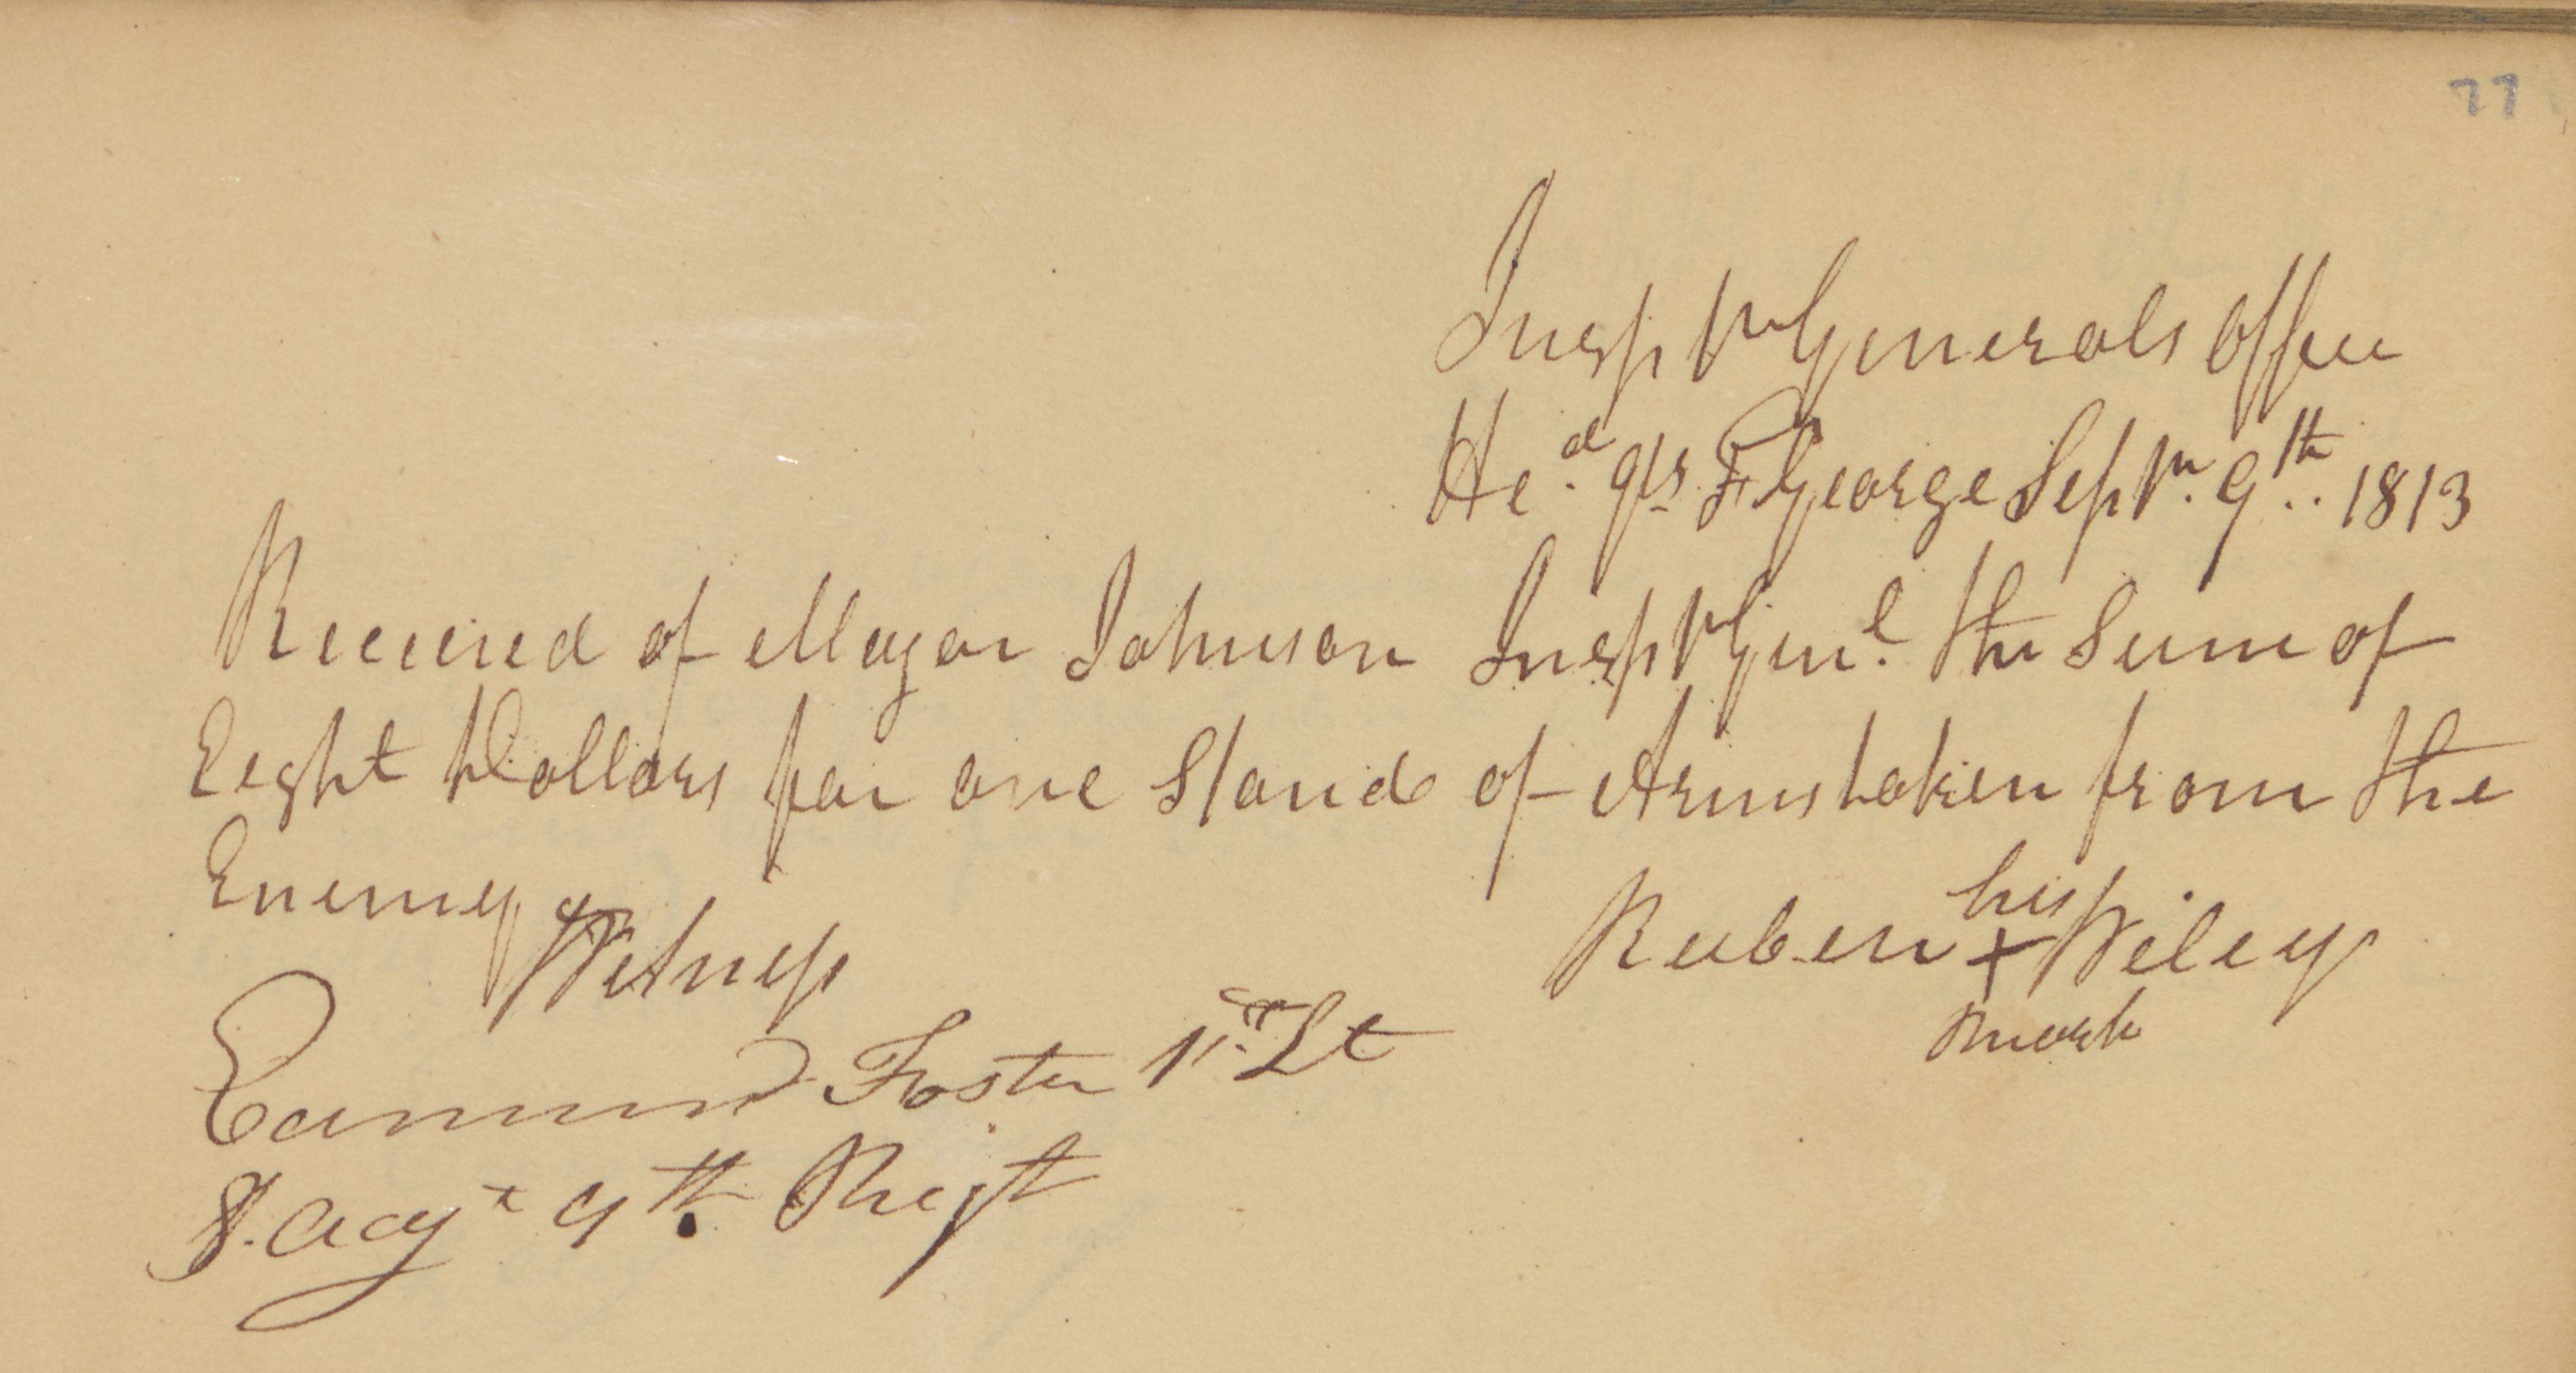 77
Insptr Generals Office
Hed. qrs Ft George Septr. 9th.. 1813
Received of Major Johnson Inspt Genl. the Sum of
Eight Dollars for one Stand of Arms taken from the
Enemy
his
Witness Reuben + Wiley
mark
Edmund Foster 1st. Lt
& Adjt 9th Regt